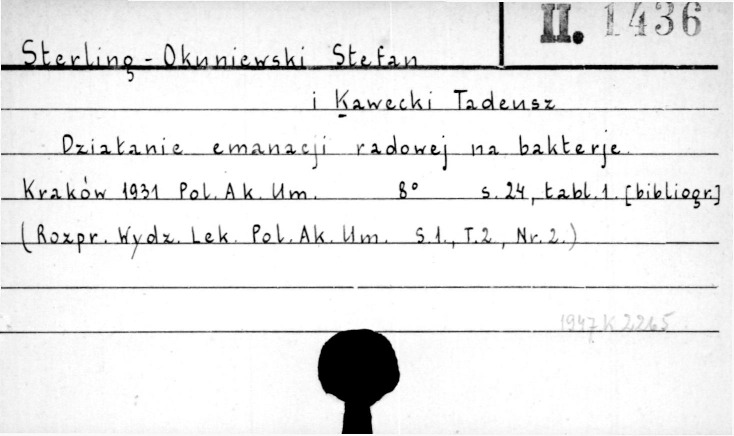 II. 1436
Sterling-Okuniewski Stefan
i Kawecki Tadeusz
Działanie emanacji radowej na bakterje.
Kraków 1931 Pol. Ak. Um. 8° s. 24, tabl. 1. [bibliogr.]
(Rozpr. Wydz. Lek. Pol. Ak. Um. S.1., T.2, Nr. 2.)
1947 K 2265